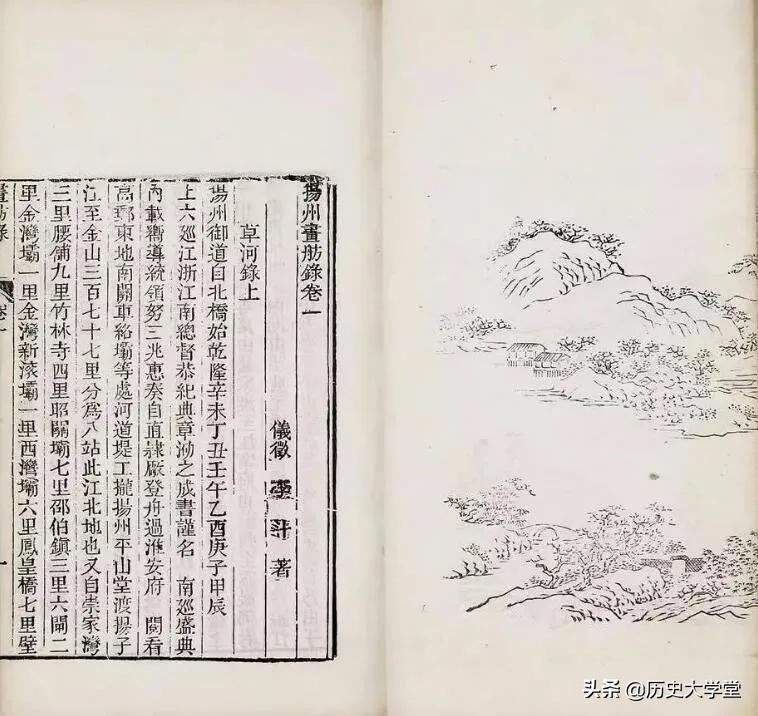 揚州畫舫錄卷一
儀徵 李斗 著
草河錄上
揚州御道自北橋始乾隆辛未丁丑壬午乙酉庚子甲辰
上六廵江浙江南總督恭紀典章泐之成書謹名 南廵盛典
內載嚮導統領努三兆惠奏自直隷厰登舟過淮安府 閱看
高郵東地南關車絡壩等處河道堤工攏揚州平山堂渡揚子
江至金山三百七十七里分爲八站此江北地也又自崇家灣
三里腰舖九里竹林寺四里昭關壩七里邵伯鎭三里六閘二
里金灣壩一里金灣新滚壩一里西灣壩六里鳳皇橋七里壁
畫舫錄 卷一 一
头条 @历史大学堂